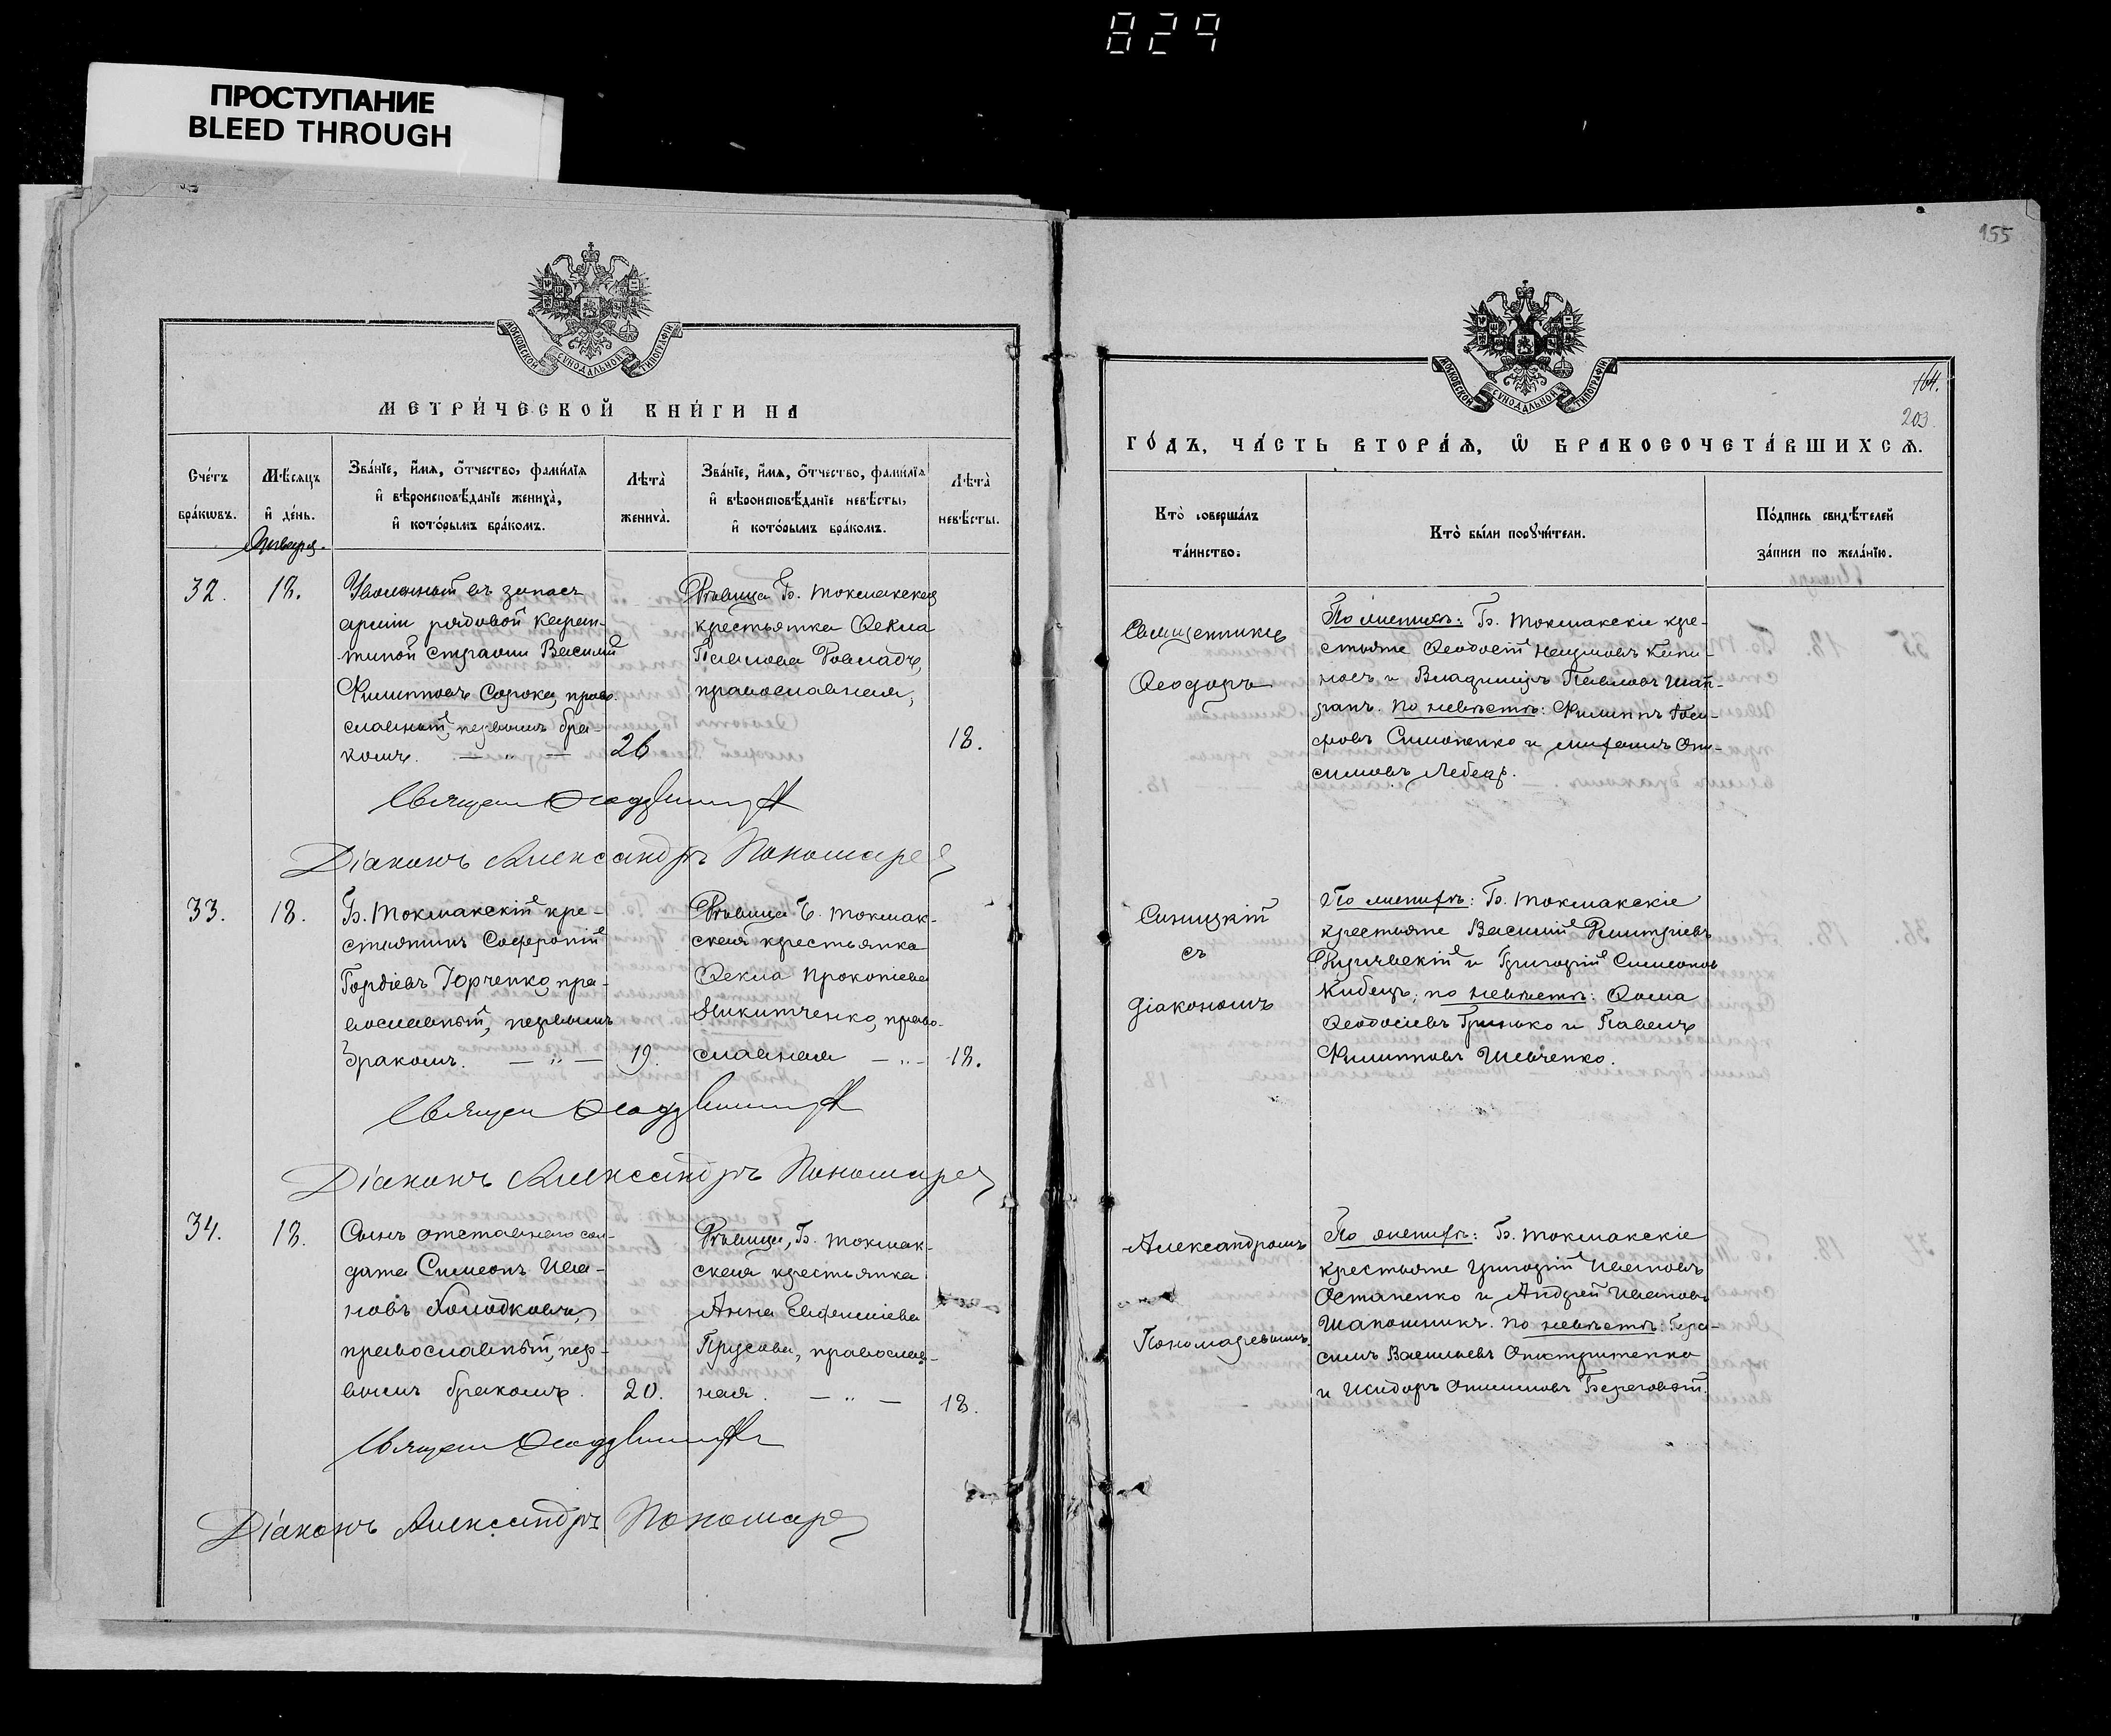 829
ПРОСТУПАНИЕ
BLEED THROUGH
МОСКОВСКОЙ СѴНОДАЛЬНОЙ ТИПОГРАФІИ
МЕТРИ́ЧЕСКОЙ КНИ́ГИ НА
Сче́тъ бра́кѡвъ.
Мѣ́сяцъ и҆ де́нь.
Зва́нїе, и҆́мѧ, ѻ҆́тчество, фами́лїѧ
и҆ вѣроисповѣ́данїе жениха̀,
и҆ кото́рымъ бра́комъ.
Лѣта̀ жениха̀.
Зва́нїе, и҆́мѧ, ѻ҆́тчество, фами́лїѧ
и҆ вѣроисповѣ́данїе невѣ́сты,
и҆ кото́рымъ бра́комъ.
Лѣта̀ невѣ́сты.
Января.
32.
18.
Уволенный въ запасъ
арміи рядовой каран-
тиной стражи Василій
Филипповъ Сорока, право-
славный, первымъ бра-
комъ. — „ —
26
Дѣвица Б. Токмакская
крестьянка Ѳекла
Павлова Ковладъ,
православная,
18.
Діаконъ Александръ Пономаре
33.
18.
Б. Токмакскій кре-
стьянинъ Софроній
Гордіевъ Юрченко, пра-
вославный, первымъ
бракомъ. — „ —
19.
Дѣвица Б. Токмак-
ская крестьянка
Ѳекла Прокопіева
Никитченко, право-
славная — „ —
18.
Діаконъ Александръ Пономаре
34.
18.
Сынъ отставного сол-
дата Симеонъ Ива-
новъ Холодковъ,
православный, пер-
вымъ бракомъ.
20.
Дѣвица, Б. Токмак-
ская крестьянка
Анна Евфиміева
Прусова, православ-
ная. — „ —
18.
Діаконъ Александръ Пономаре
155
МОСКОВСКОЙ СѴНОДАЛЬНОЙ ТИПОГРАФІИ
164.
203.
ГО́ДЪ, ЧА́СТЬ ВТОРА́Ѧ, Ѡ҆ БРАКОСОЧЕТА́ВШИХСѦ.
Кто̀ соверша́лъ
та́инство.
Кто̀ бы́ли порꙋчи́тели.
По́дпись свидѣ́телей
за́писи по жела́нїю.
Священникъ
Ѳеодоръ
По женихѣ: Б. Токмакскіе кре-
стьяне Ѳеодосій Наумовъ
и Владиміръ Павловъ
по невѣстѣ: Филиппъ Іоси-
фовъ Симоненко и Михаилъ Они-
симовъ Лебедь.
Синицкій
съ
діакономъ
По женихѣ: Б. Токмакскіе
крестьяне Василій Димитріевъ
и Григорій Симеоновъ
Кибецъ; по невѣстѣ: Ѳома
Ѳеодосіевъ Гринько и Павелъ
Филипповъ Шевченко.
Александромъ
Пономаревымъ.
По женихѣ: Б. Токмакскіе
крестьяне Григорій Ивановъ
Остапенко и Андрей Ивановъ
Шапошникъ. по невѣстѣ: Гера-
симъ Васильевъ
и Исидоръ Береговой.